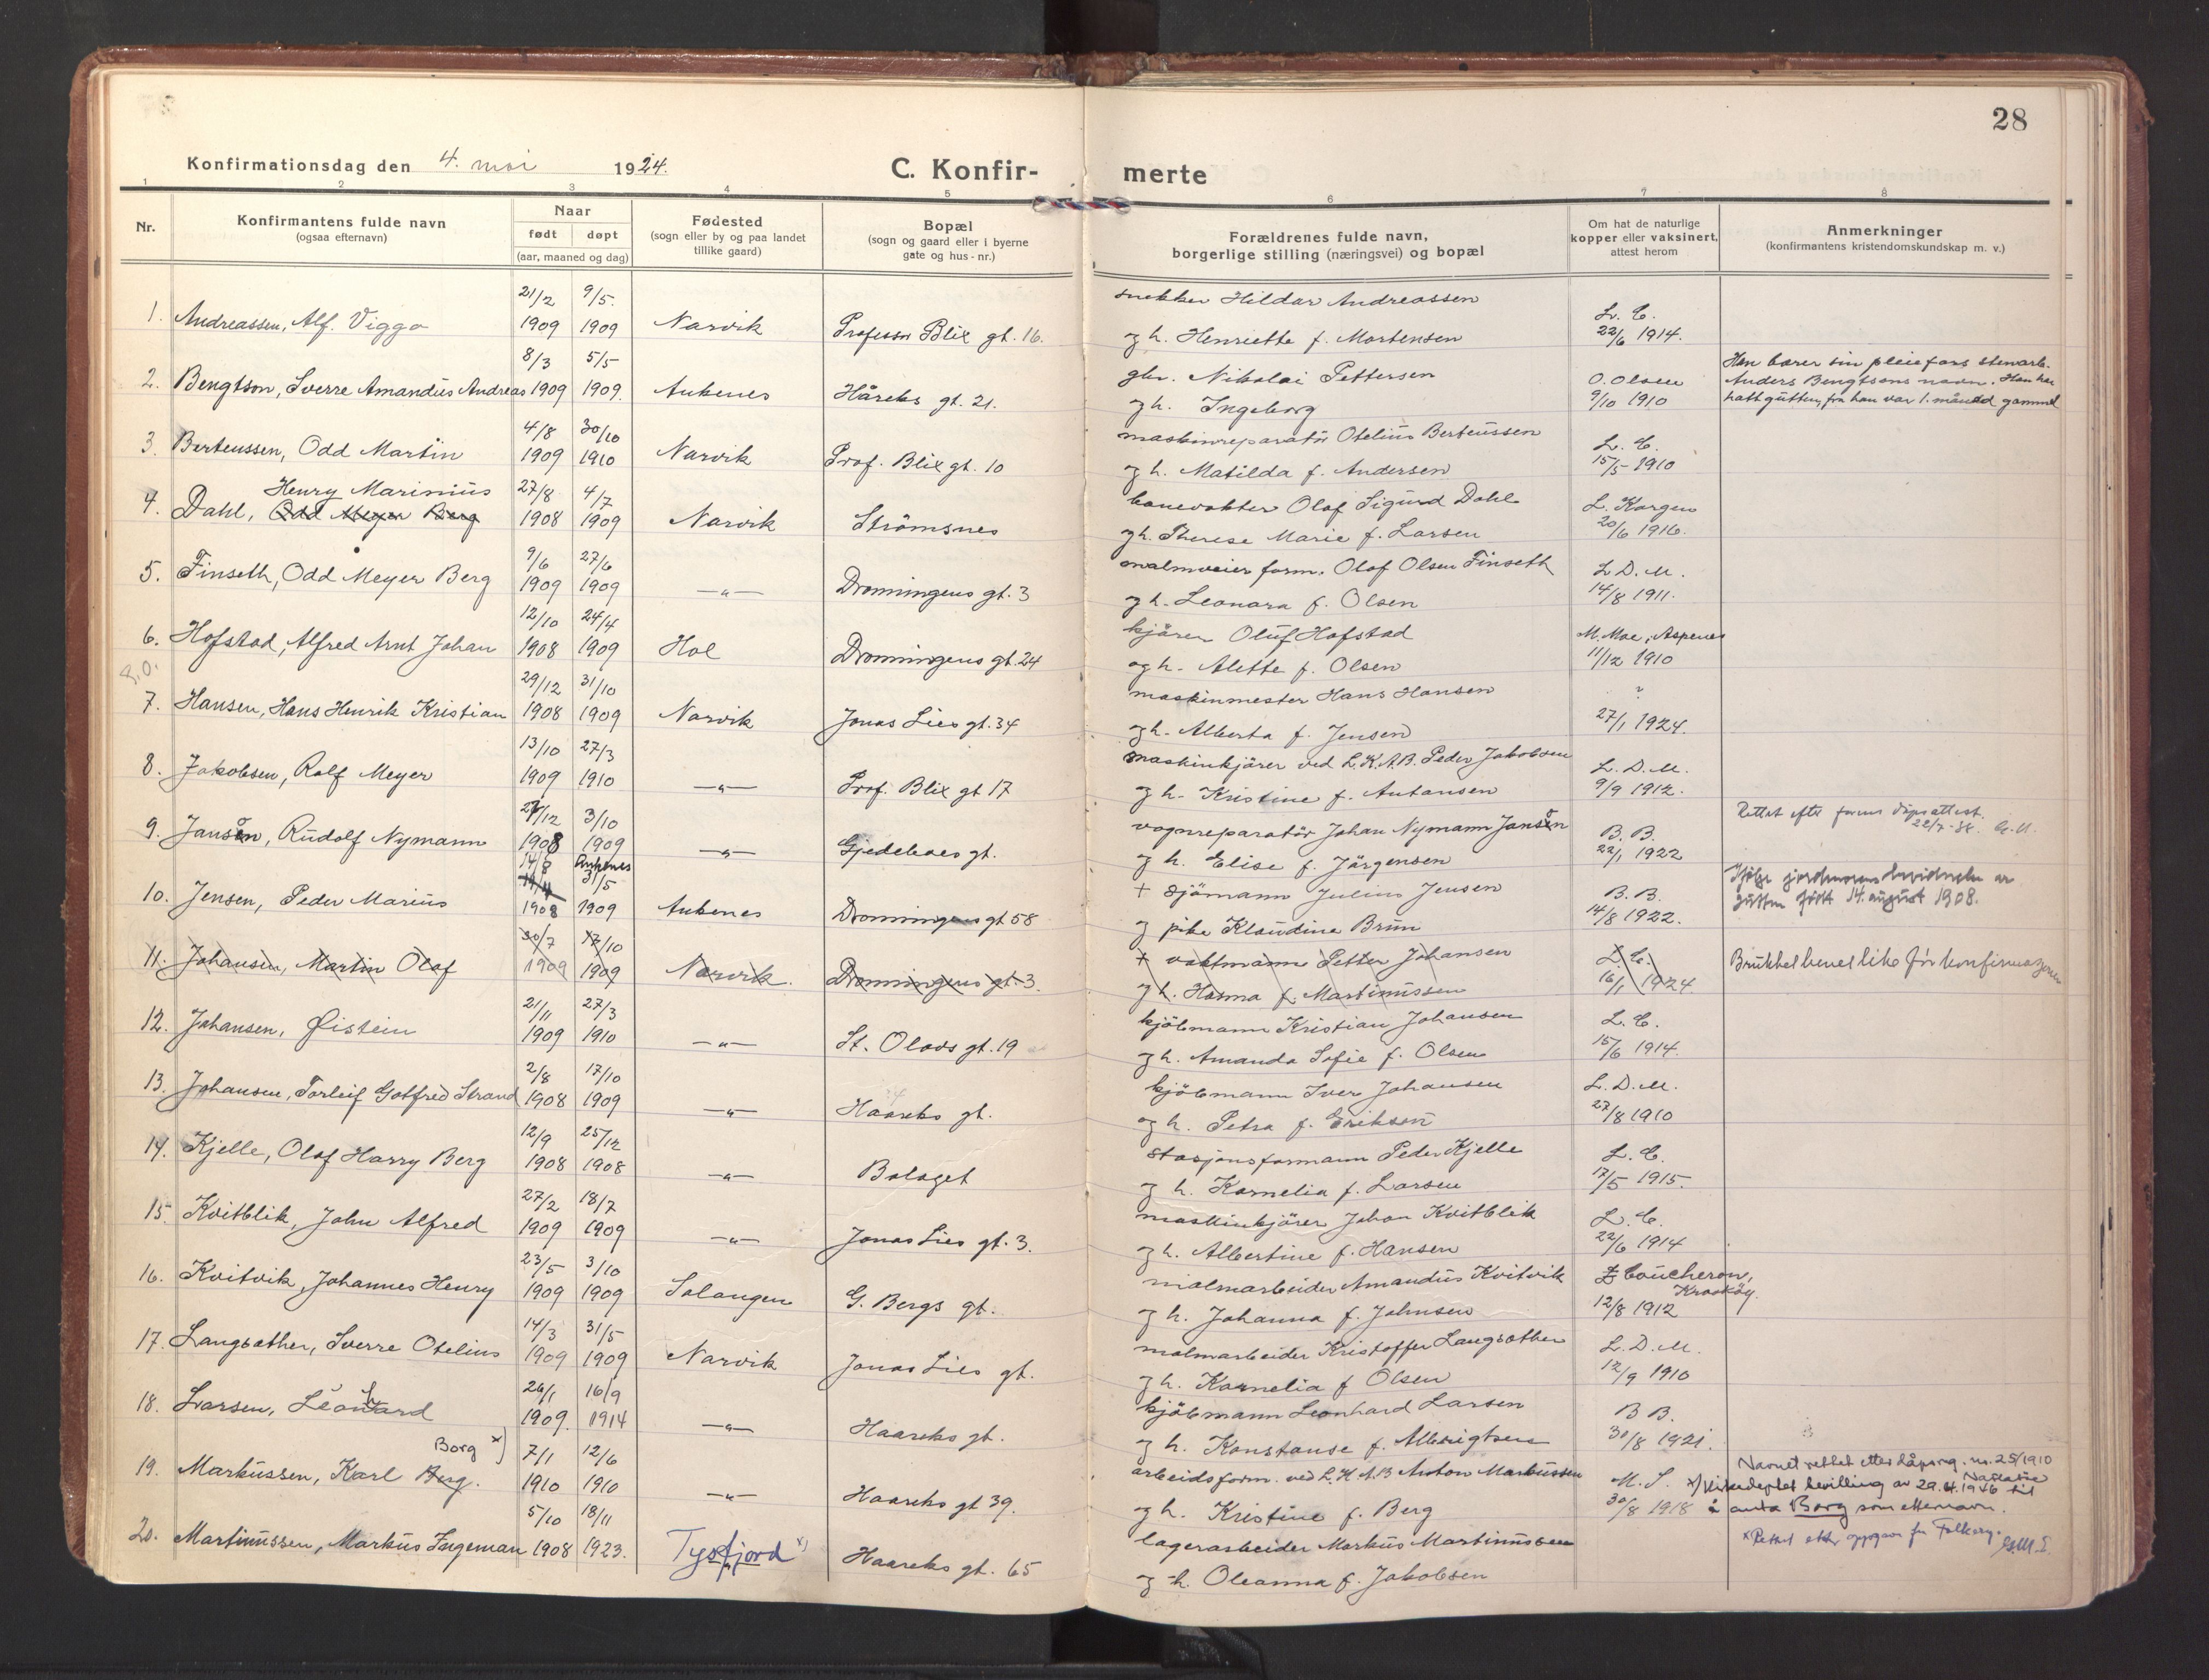 28
Konfirmationsdag den 4. mai 1924.
C. Konfir- merte
1 2 3 4 5 6 7 8
Nr.
Konfirmantens fulde navn (ogsaa efternavn)
Naar født døpt (aar, maaned og dag)
Fødested (sogn eller by og paa landet tillike gaard)
Bopæl (sogn og gaard eller i byerne gate og hus-nr.)
Forældrenes fulde navn, borgerlige stilling (næringsvei) og bopæl
Om hat de naturlige kopper eller vaksinert, attest herom
Anmerkninger (konfirmantens kristendomskundskap m. v.)
1. Andreassen, Alf. Viggo 21/2 1909 9/5. 1909 Narvik Professor Blix gt. 16.
snekker Hildar Andreassen
og h. Henriette f. Mortensen
L. C. 22/6 1914.
2. Bengtson, Sverre Amandus Andreas 8/3 1909 5/5 1909. Ankenes Håreks gt. 21.
gbr. Nikolai Pettersen
og h. Ingeborg
O. Olsen 9/10 1910
Han bærer sin pleiefars stenarb.
Anders Bengtsons navn. Han har
hatt gutten fra han var 1. månad gammel
3. Berteussen, Odd Martin 4/8 1909 30/10 1910 Narvik Prof. Blix gt. 10
maskinreparatör Otelius Berteussen
og h. Matilda f. Andersen
L. C. 15/5 1910
4. Dahl, Odd Meyer Berg Henry Marinius 27/8 1908 4/7 1909 Narvik Strömsnes
banevokter Olaf Sigurd Dahl
og h. Therese Marie f. Larsen
L. Korgen 20/6 1916.
5. Finseth, Odd Meyer Berg 9/6 1909 27/6 1909 —"— Dronningens gt. 3
malmveier form. Olaf Olsen Finseth
og h. Leonora f. Olsen
L D. M. 14/8 1911.
6. Hofstad, Alfred Arnt Johan 12/10 1908 24/4 1909 Hol Dronningens gt. 24
kjörer Oluf Hofstad
og h. Alette f. Olsen
M. Moe, Aspenes 11/12 1910
7. Hansen, Hans Henrik Kristian 29/12 1908 31/10 1909 Narvik Jonas Lies gt. 34
maskinmester Hans Hansen
og h. Alberta f. Jensen
? 27/1 1924.
8. Jakobsen, Rolf Meyer 13/10 1909 27/3 1910 —"— Prof. Blix gt 17
maskinkjörer ved L.K.A.B. Peder Jakobsen
og h. Kristine f. Antonsen
L. D. M. 9/9 1912.
9. Janson, Rudolf Nymann 27/12 1908 3/10 1909 —"— Gjedebaes gt.
vognreparatör Johan Nymann Janson
og h. Elise f. Jörgensen
B. B. 22/1 1922
Rettet efter forevist döpsattest.
22/7-38.
10. Jensen, Peder Marius 14/8 14/4 1908 Ankenes 31/5 1909 Ankenes Dronningens gt 58
+ sjömann Julius Jensen
og pike Klaudina Brun
B. B. 14/8 1922.
Ifölge jordmorens bevidnelse er
gutten född 14. august 1908.
11. Johansen, Martin Olaf 30/7 1909 17/10 1909 Narvik. Dronningens gt. 3.
+ vaktmann Petter Johansen
og h. Harma f. Martinussen
L. C. 16/1 1924
Brukket benet like för konfirmasjonen
12. Johansen, Øistein 21/11 1909 27/3 1910 —"— St. Olavs gt. 19
kjöbmann Kristian Johansen
og h. Amanda Sofie f. Olsen
L. C. 15/6 1914.
13. Johansen, Torleif Gotfred Strand 2/8 1908 17/10 1909 —"— Haareks gt.
kjöbmann Iver Johansen
og h. Petra f. Eriksen
L. D. M. 27/8 1910
14. Kjelle, Olaf Harry Berg 12/9 1908 25/12 1908 —"— Bolaget
stasjonsformann Peder Kjelle
og h. Kornelia f. Larsen
L. C. 17/5 1915.
15. Kvitblik, John Alfred 27/2 1909 18/7 1909 —"— Jonas Lies gt. 3.
maskinkjörer Johan Kvitblik
og h. Albertine f. Hansen
L. C. 22/6 1914
16. Kvitvik, Johannes Henry 23/5 1909 3/10 1909 Salangen G. Bergs gt.
malmarbeider Amandus Kvitvik
og h. Johanna f. Johnsen
Boucheron, 12/8 1912
17. Langsæther, Sverre Otelius 14/3 1909 31/5 1909 Narvik Jonas Lies gt.
malmarbeider Kristoffer Langsæther
og h. Kornelia f Olsen
L. D. M. 12/9 1910
18. Larsen, Leonhard 26/1 1909. 16/9 1914 —"— Haareks gt.
kjöbmann Leonhard Larsen
og h. Konstanse f. Albrigtsen
B B. 30/8 1921.
19. Markussen, Karl Berg. Borg x) 7/1 1910 12/6 1910 —"— Haareks gt 39.
arbeidsform. ved L.K.A.B Anton Markussen
og h. Kristine f. Berg
M. S. 30/8 1918
Navnet rettet etter dåpsreg. nr. 25/1910 Narvik
x) Kirkedeptet bevilling av 29.4.1946 til
å anta Borg som etternavn.
20. Martinussen, Markus Ingeman 5/10 1908 18/11 1923. Tysfjord x) Haareks gt. 65
lagerarbeider Markus Martinussen
og h. Oleanna f. Jakobsen
x Rettet etter oppgave fra Folkereg.